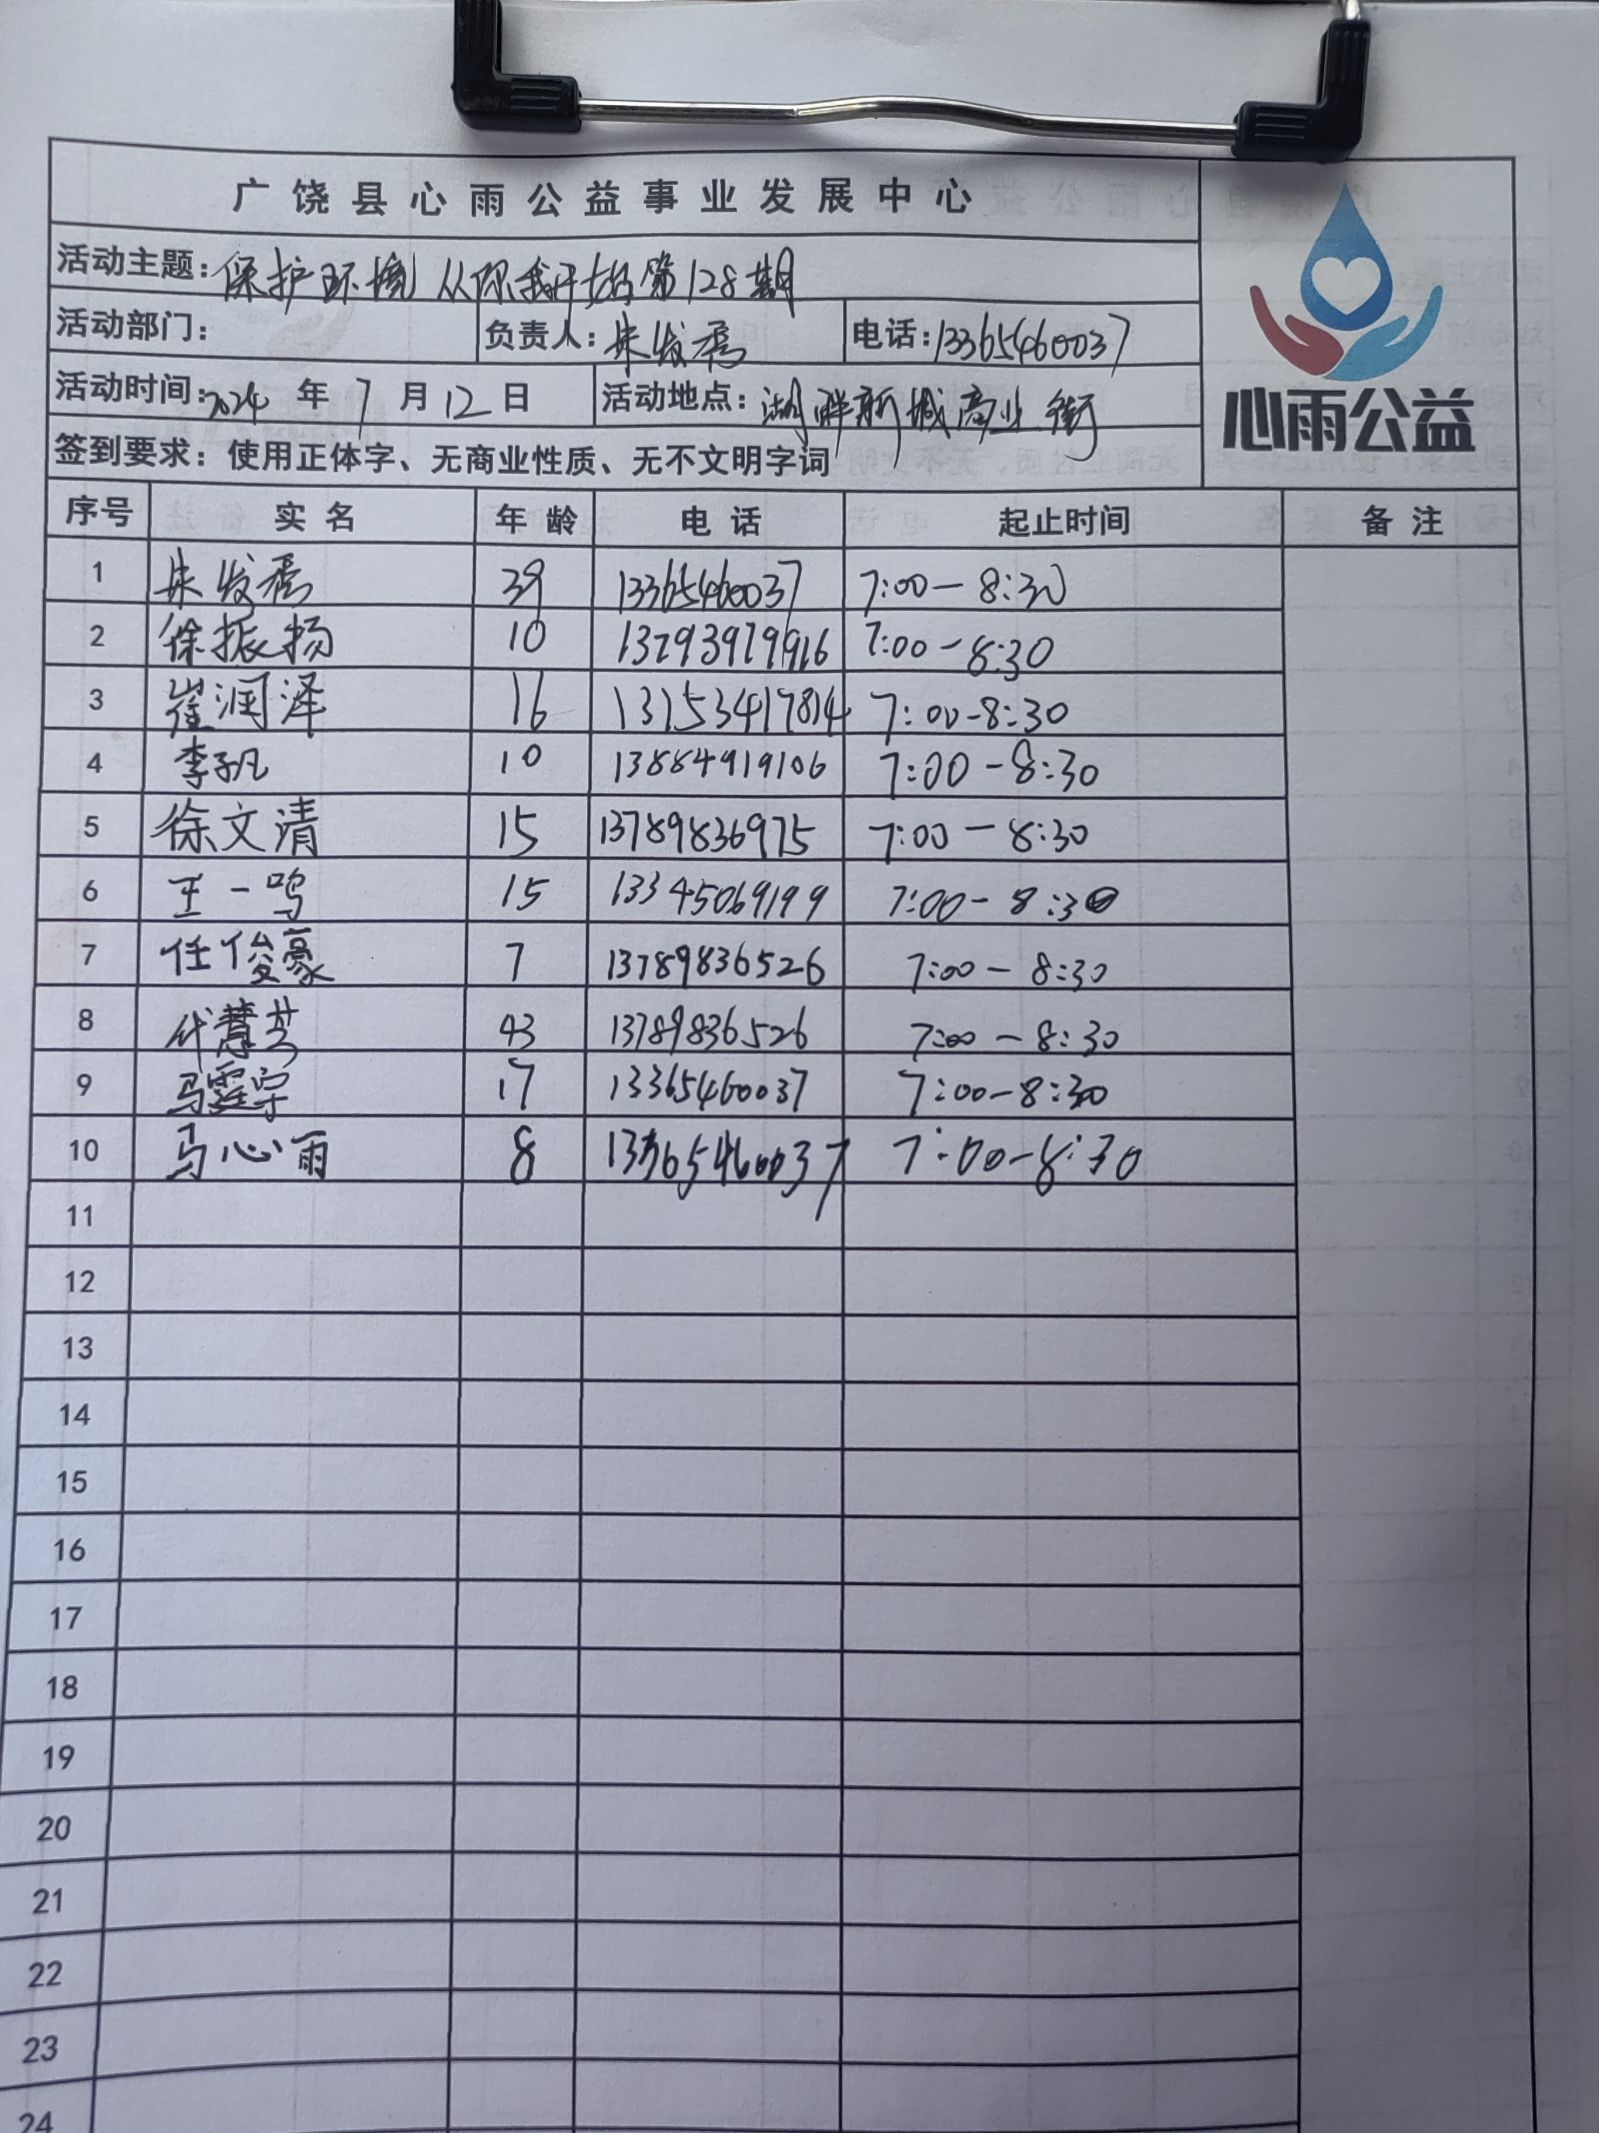 广饶县心雨公益事业发展中心
活动主题：保护环境 从你我开始第128期
活动部门： 负责人：朱发秀 电话：13365460037
活动时间：2024 年 7 月 12 日 活动地点：湖畔新城商业街
签到要求：使用正体字、无商业性质、无不文明字词
心雨公益
序号 实名 年龄 电话 起止时间 备注
1 朱发秀 39 13365460037 7:00-8:30
2 徐振扬 10 13793979916 7:00-8:30
3 崔润泽 16 13153417814 7:00-8:30
4 李帆 10 13884919106 7:00-8:30
5 徐文清 15 13789836975 7:00-8:30
6 王一鸣 15 13345069199 7:00-8:30
7 任俊豪 7 13789836526 7:00-8:30
8 代慧芝 43 13789836526 7:00-8:30
9 马霆宇 17 13365460037 7:00-8:30
10 马心雨 8 13365460037 7:00-8:30
11
12
13
14
15
16
17
18
19
20
21
22
23
24